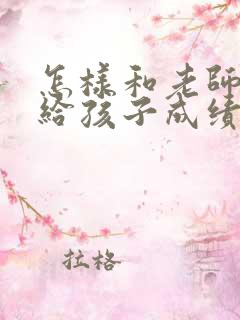 怎樣和老師
給孩子成績
拉格